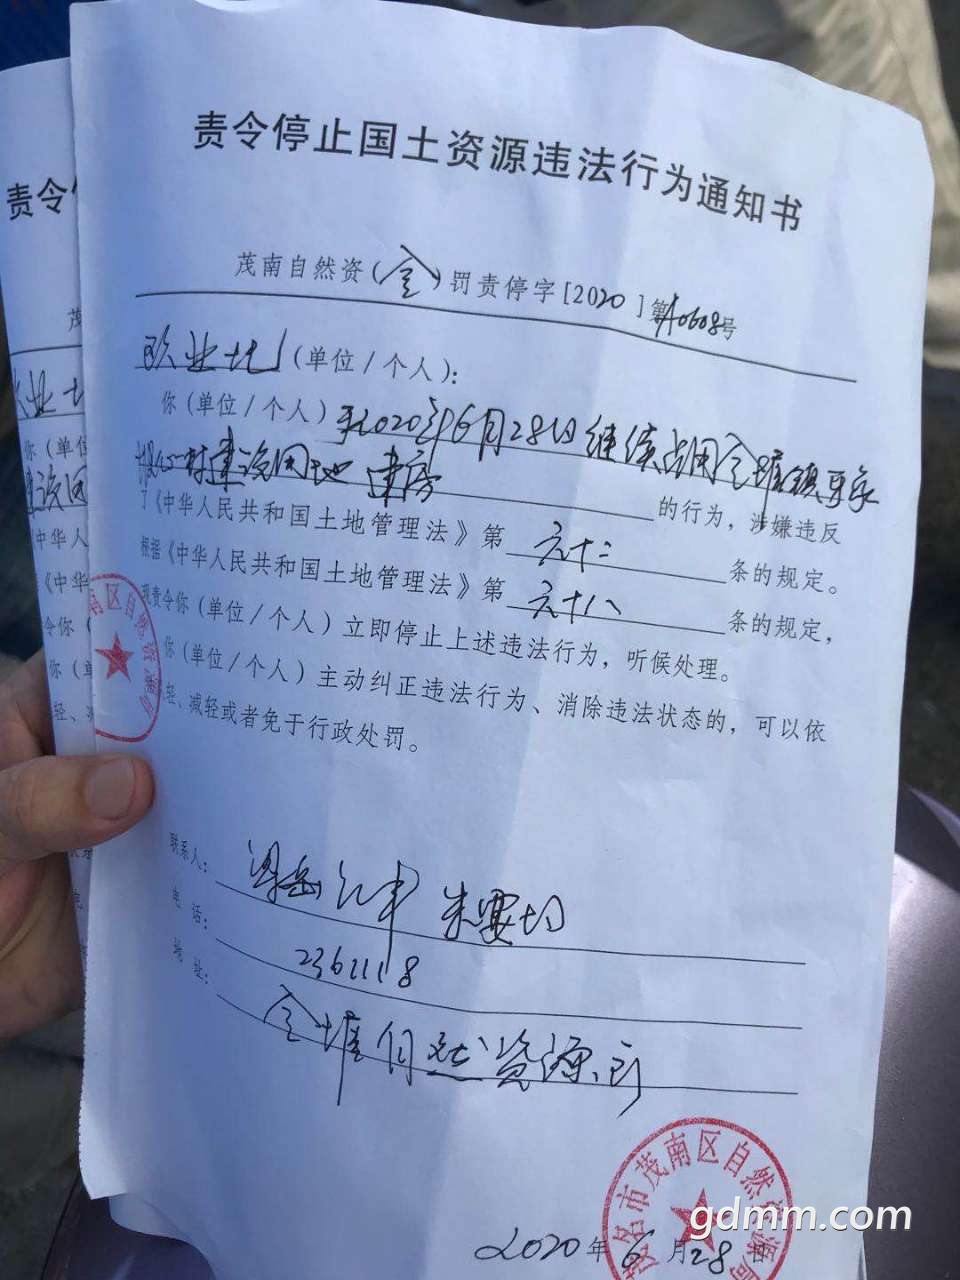 责令停止国土资源违法行为通知书
茂南自然资(金)罚责停字[2020]第10608号
(单位/个人):
你(单位/个人)于2020年6月28日继续占用金塘镇
村建设用地建房的行为,涉嫌违反
了《中华人民共和国土地管理法》第六十二条的规定。
根据《中华人民共和国土地管理法》第六十八条的规定,
现责令你(单位/个人)立即停止上述违法行为,听候处理。
你(单位/个人)主动纠正违法行为、消除违法状态的,可以依
轻、减轻或者免于行政处罚。
联系人:
电话:2361118
地址:金塘自然资源所
茂名市茂南区自然资源局
2020年6月28日
南区自然资源局
责令
茂
业
你(单位
建设用
中华人
《中华
令你(
你(单
轻、减
gdmm.com